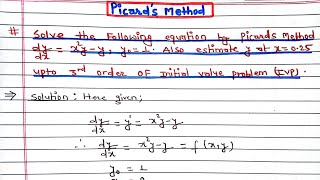 Picard's Method
# Solve the Following equation by Picards Method
dy/dx = x²y-y, y₀=1. Also estimate y at x=0.25
upto 3rd order OF initial value problem (IVP).
⇒ Solution: Here given;
dy/dx = y' = x²y-y
∴ dy/dx = x²y-y = f(x,y)
y₀ = 1